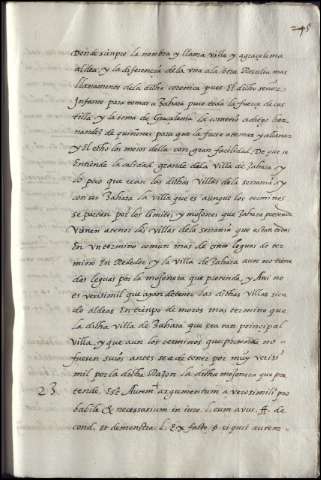 Donde siempre la nombra y llama villa y a gracalema
aldea, y la diferencia de la una a la otra
llanamente de la dicha coronica pues El dicho senor
Infante para tomar a Zahara puso toda la fuerça de cas
tilla, y la toma de Gracalema la cometio a diego her
nandez de quiñones para que la fuese a tomar y allanar
y el echo los moros della con gran facilidad. De que se
Entiende la calidad grande de la Villa de Zahara, y
lo poco que eran las dichas Villas de la serrania, y
con ser Zahara la villa que es aunque los terminos
se partan por los limites, y mojones que Zahara pretende
Vienen a tener las villas de la serrania que estan todas
En un termino comun mas de siete leguas de ter
mino En Rededor, y la villa de Zahara aun no tiene
dos leguas por la mojonera que pretende, y Ansi no
es verisimil que ayan de tener las dichas Villas sien
do aldeas En tienpo de moros mas termino que
la dicha villa de Zahara que era tan principal
Villa, y que aun los terminos que pretende no
fuesen suyos antes se a de tener por muy verisi
mil por la dicha Razon la dicha mojonera que pre
23 tende, Est Autem argumentum a verosimili pro
babile & necessarium in iure. l. cum avus, ff. de
cond. et demonstra. l. Ex facto. § si quis autem